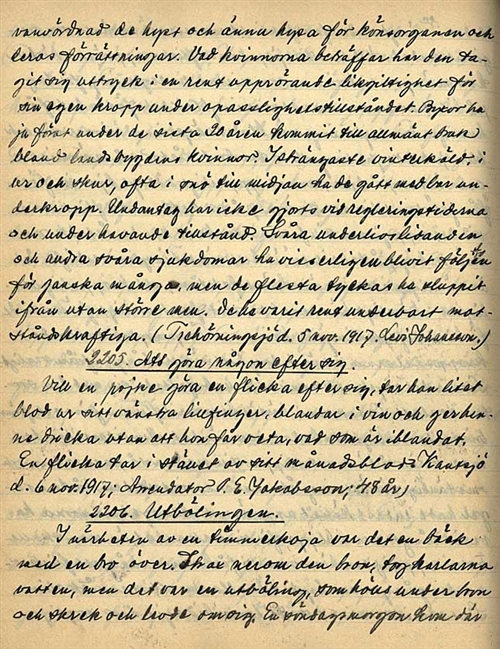 vanvördnad de hyst och ännu hysa för könsorganen och
deras förrättningar. Vad kvinnorna beträffar har den ta-
git sig uttryck i en rent upprörande likgiltighet för
sin egen kropp under opasslighetstillståndet. Byxor ha
ju först under de sista 20 åren kommit till allmänt bruk
bland landsbygdens kvinnor. I strängaste vinterkäld, i
ur och skur, ofta i snö till midjan ha de gått med bar un-
derkropp. Undantag har icke gjorts vid regleringstiderna
och under havande tillstånd. Svåra underlivslidanden
och andra svåra sjukdomar ha visserligen blivit följden
för ganska många, men de flesta tyckas ha sluppit
ifrån utan större men. De ha varit rent underbart mot-
ståndskraftiga. (Tschörningsjö d. 5 nov. 1917. Levi Johansson.)
2205. Att göra någon efter sig.
Vill en pojke göra en flicka efter sig, tar han litet
blod ur sitt vänstra lillfinger, blandar i vin och ger hen-
ne dricka utan att hon får veta, vad som är iblandat.
En flicka tar i stället av sitt månadsblod. Kantsjö
d. 6 nov. 1917; Arrendator P. E. Jakobsson, 48 år)
2206. Utbölingen.
I närheten av en timmerkoja var det en bäck
med en bro över. Strax nerom den bron, tog karlarna
vatten, men det var en utböling, som hölls under bron
och skrek och levde om sig. En söndagsmorgon kom där